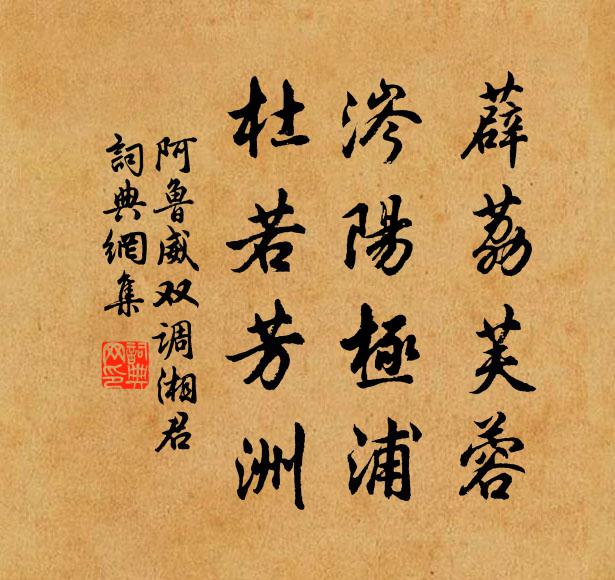 薜荔芙蓉
涔陽極浦
杜若芳洲
阿魯威双调湘君
詞典網集
詞典网印